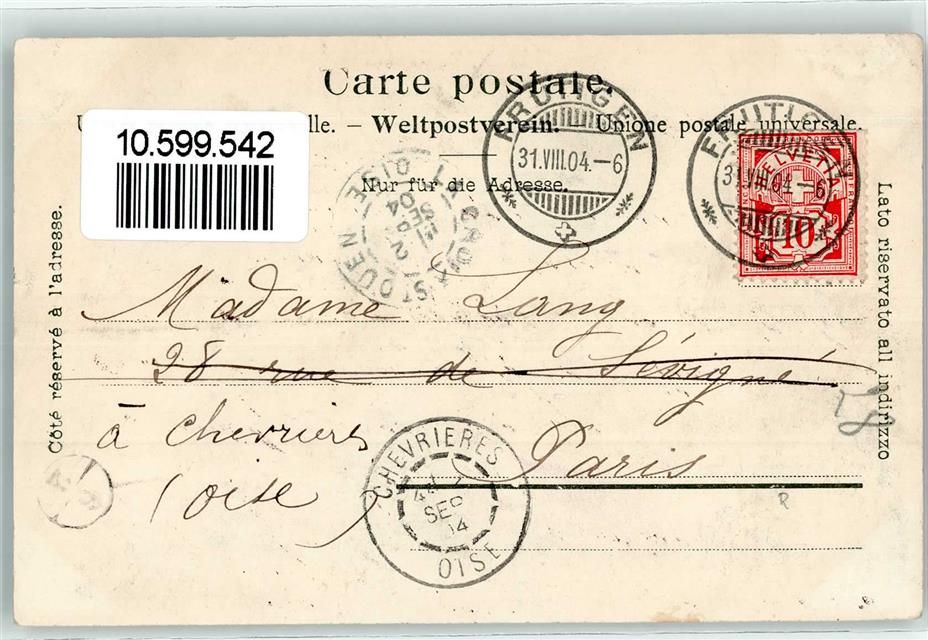 Carte postale.
10.599.542
lle. – Weltpostverein. – Unione postale universale.
Nur für die Adresse.
Côté réservé à l'adresse.
Lato riservato all indirizzo
FRUTIGEN
31.VIII.04.–6
FRUTIGEN
31.VIII.04.–6
HELVETIA
10
ST OUEN
OISE
2
SEPT
04
Madame Lang
28 rue de Sévigné
à Chevrières
Paris
(Oise)
CHEVRIERES
SEP
04
OISE